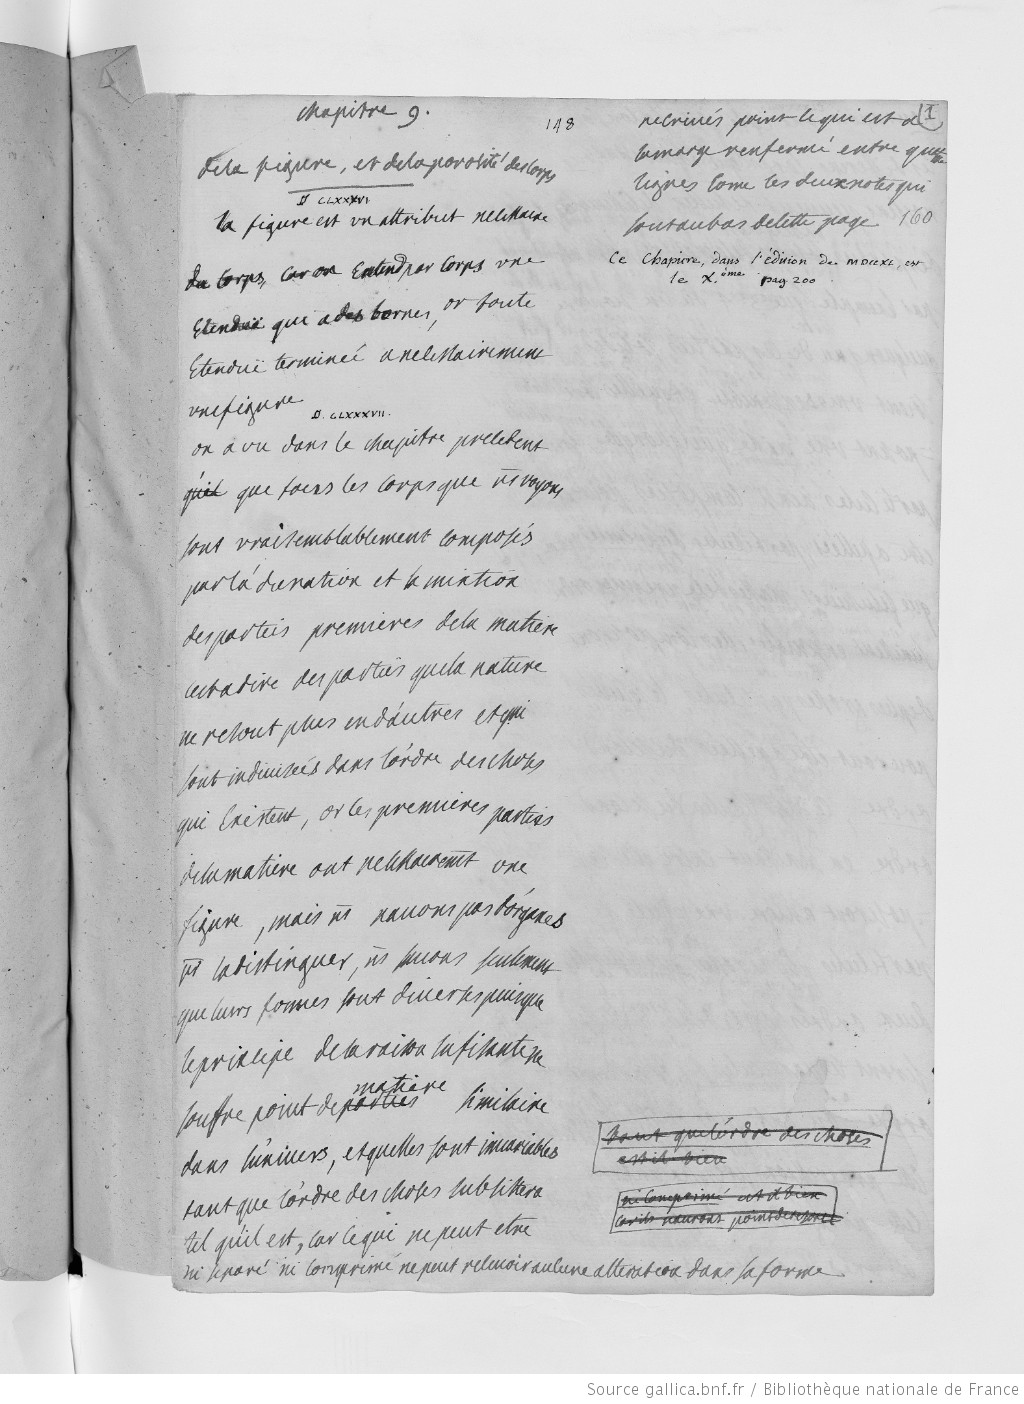 chapitre 9.
148
de la figure, et de la porosité des corps
§ CLXXXVI
la figure est un attribut necessaire
du corps, car on Entend par corps une
Etenduë qui a des bornes, or toute
Etenduë terminée a necessairement
une figure
§. CLXXXVII.
on a vu dans le chapitre precedent
qu'il que tous les corps que ns voyons
sont vraisemblablement composés
par la et la mixtion
des parties premieres de la matiere
cest a dire des parties que la nature
ne resout plus en d'autres et qui
sont indivisées dans l'ordre des choses
qui Existent, or les premieres parties
de la matiere ont necessairemt une
figure, mais ns nauons pas d'organes
pr la distinguer, ns sauons seulement
que leurs formes sont diuerses puisque
le principe de la raison sufisante ne
matiere
souffre point de parties similaire
dans l'univers, et quelles sont inuariables
tant que l'ordre des choses subsistera
tel qu'il est, car ce qui ne peut etre
ni separé ni comprimé ne peut receuoir aucune alteration dans sa forme
1
necrivés point ce qui est a
la marge renfermé entre quatre
lignes come les deux notes qui
sont au bas de cette page
160
Ce Chapitre, dans l'édition de MDCCXL, est
le X.ème pag 200
tant que l'ordre des choses
est il bien
ni comprimé est il bien
car ils nauront point de